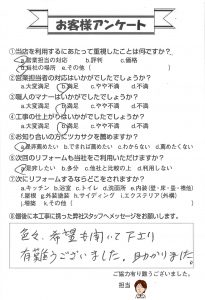 お客様アンケート
①当店を利用するにあたって重視したことは何ですか?
a.営業担当の対応 b.評判 c.価格
d.当社の場所 e.その他(
②営業担当者の対応はいかがでしたでしょうか?
a.大変満足 b.満足 c.やや不満 d.不満
③職人のマナーはいかがでしたでしょうか?
a.大変満足 b.満足 c.やや不満 d.不満
④工事の仕上がりはいかがでしたでしょうか?
a.大変満足 b.満足 c.やや不満 d.不満
⑤お知り合いの方にツカサを薦めますか?
a.是非薦めたい b.できれば薦めたい c.わからない d.薦めたくない
⑥次回のリフォームも当社をご利用いただけますか?
a.是非したい b.多分 c.他社と比較の上 d.利用しない
⑦次にリフォームするならどこをされますか?
a.キッチン b.浴室 c.トイレ d.洗面所 e.内装(壁・床・畳・襖他)
f.屋根 g.外装塗装 h.サイディング i.エクステリア(外構)
j.増築 k.その他(
⑧最後に本工事に携った弊社スタッフへメッセージをお願いします。
色々、希望も聞いて下さり
有難うございました。助かりました。
ご協力有り難うございました。
担当